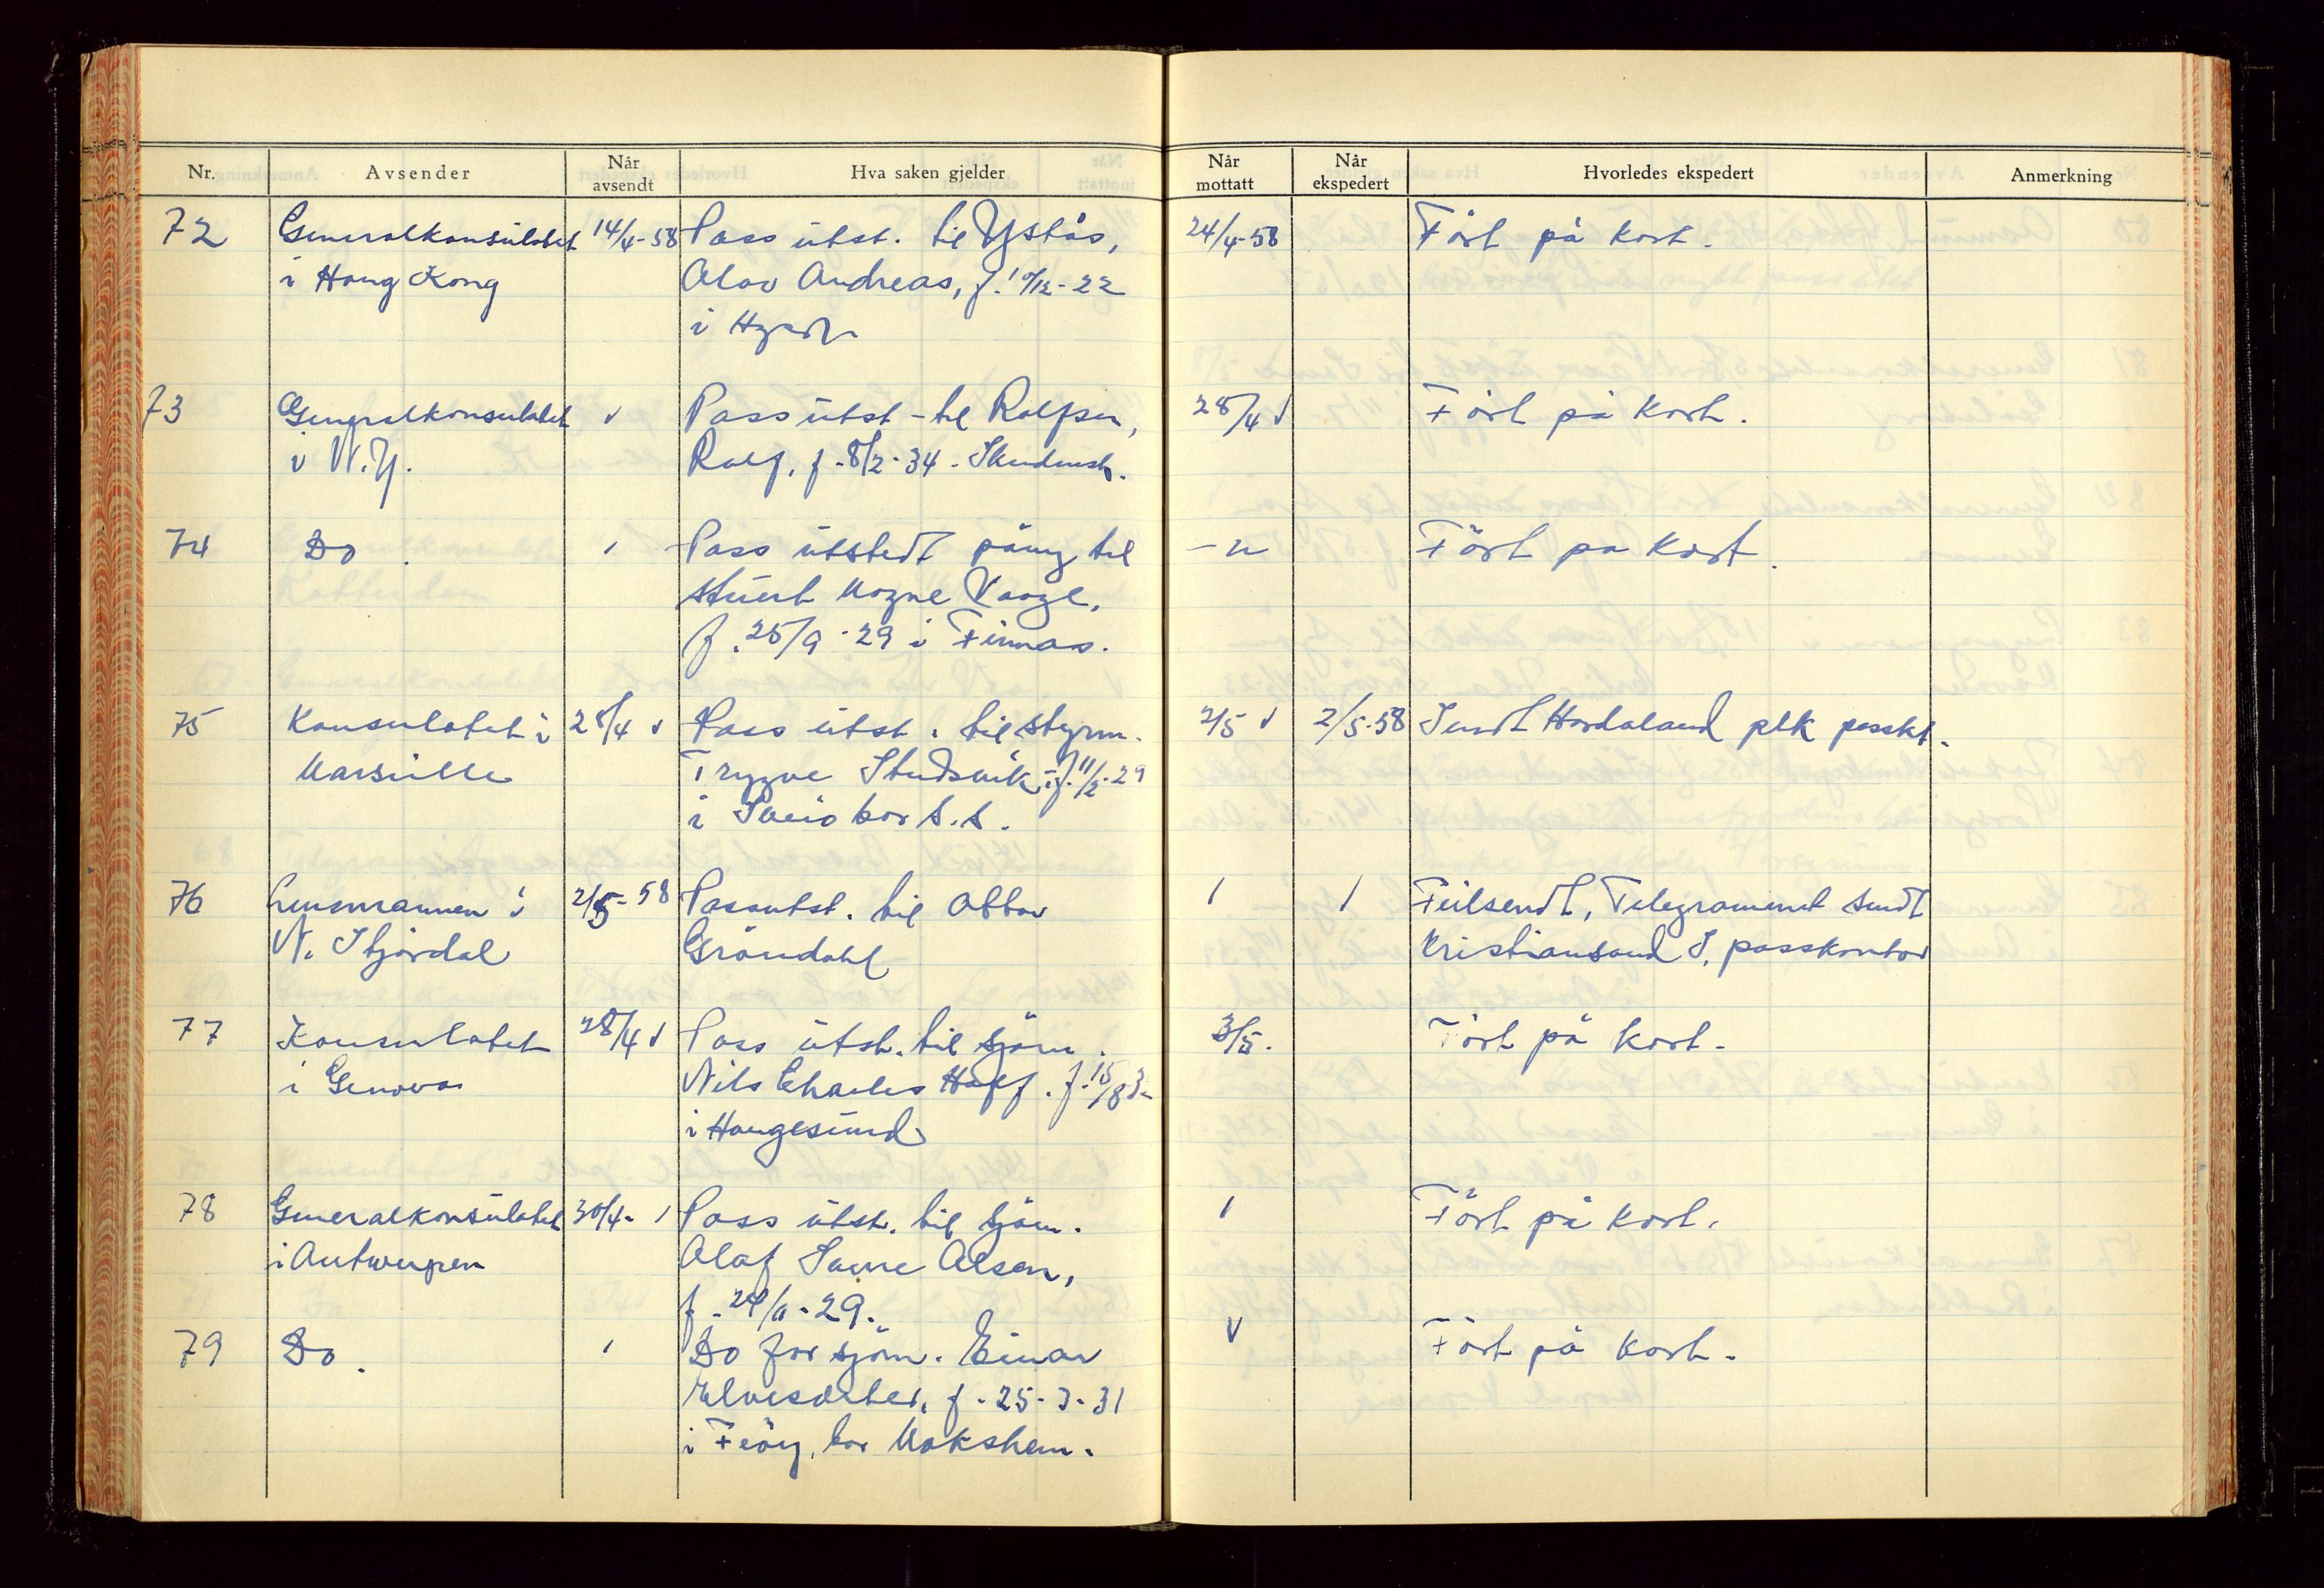 Nr. Avsender Når avsendt Hva saken gjelder Når mottatt Når ekspedert Hvorledes ekspedert Anmerkning
72 Generalkonsulatet 14/4-58 Pass utst. til Ystås, 24/4-58 Ført på kort.
i Hong Kong Olav Andreas, f.
i
73 Generalkonsulatet Pass utst - til Rolfsen, 28/4 Ført på kort.
i N.Y. Rolf, f. 8/2-34 - Skudenesh.
74 Do. Pass utstedt påny til Ført på kort.
stuert Mogne Vaage,
f. 25/9-29 i Finnås.
75 Konsulatet i 28/4 Pass utst. til styrm. 2/5 2/5-58 Sendt Hordaland plk passkt.
Marseille Trygve f. 11/2-29
i bor s.s.
76 Lensmannen i 2/5-58 Passutst. til Ottar Feilsendt, Telegrammet sendt
N. Stjørdal Grøndahl Kristiansand S. passkontor
77 Konsulatet 28/4 Pass utst. til sjøm. 3/5. Ført på kort.
i Genova Nils Charles Haff. f. 15/8
i Haugesund
78 Generalkonsulatet 30/4- Pass utst. til sjøm. Ført på kort.
i Antwerpen Olaf Olsen,
f.
79 Do. Do for sjøm. Einar Ført på kort.
f. 25-3-31
i bor